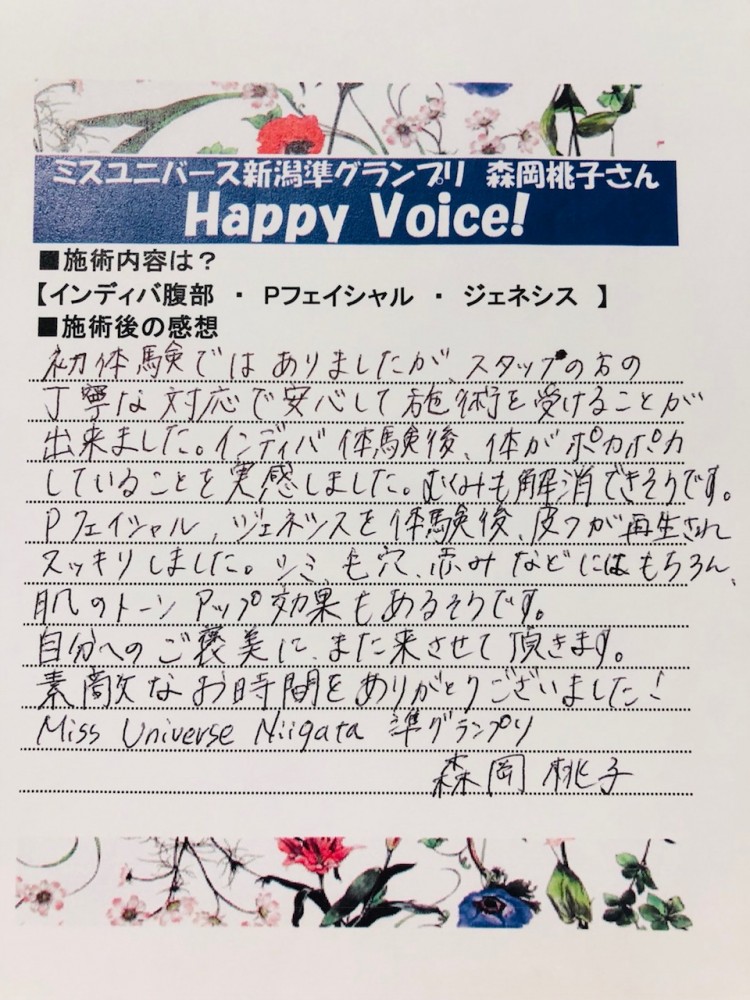 ミスユニバース新潟準グランプリ 森岡桃子さん
Happy Voice!
■施術内容は？
【インディバ腹部 ・ Pフェイシャル ・ ジェネシス 】
■施術後の感想
初体験ではありましたが、スタッフの方の
丁寧な対応で安心して施術を受けることが
出来ました。インディバ体験後、体がポカポカ
していることを実感しました。むくみも解消できそうです。
Pフェイシャル、ジェネシスを体験後、皮フが再生され
スッキリしました。シミ、毛穴、赤みなどにはもちろん、
肌のトーンアップ効果もあるそうです。
自分へのご褒美に、また来させて頂きます。
素敵なお時間をありがとうございました！
Miss Universe Niigata 準グランプリ
森岡 桃子